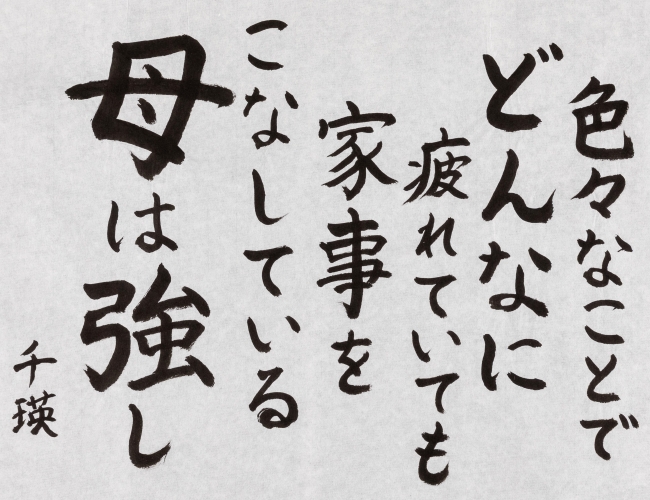 色々なことで
どんなに
疲れていても
家事を
こなしている
母は強し
千瑛